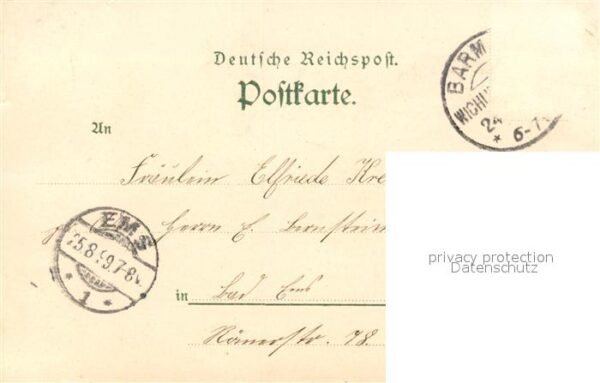 Deutsche Reichspost.
Postkarte.
BARM
WICHL
24
* 6-7
An
Fräulein Elfriede Kre
Herrn E. Bernstein
EMS
25.8.99.7-8V.
* 1 *
in Bad Ems
Römerstr. 78.
privacy protection
Datenschutz